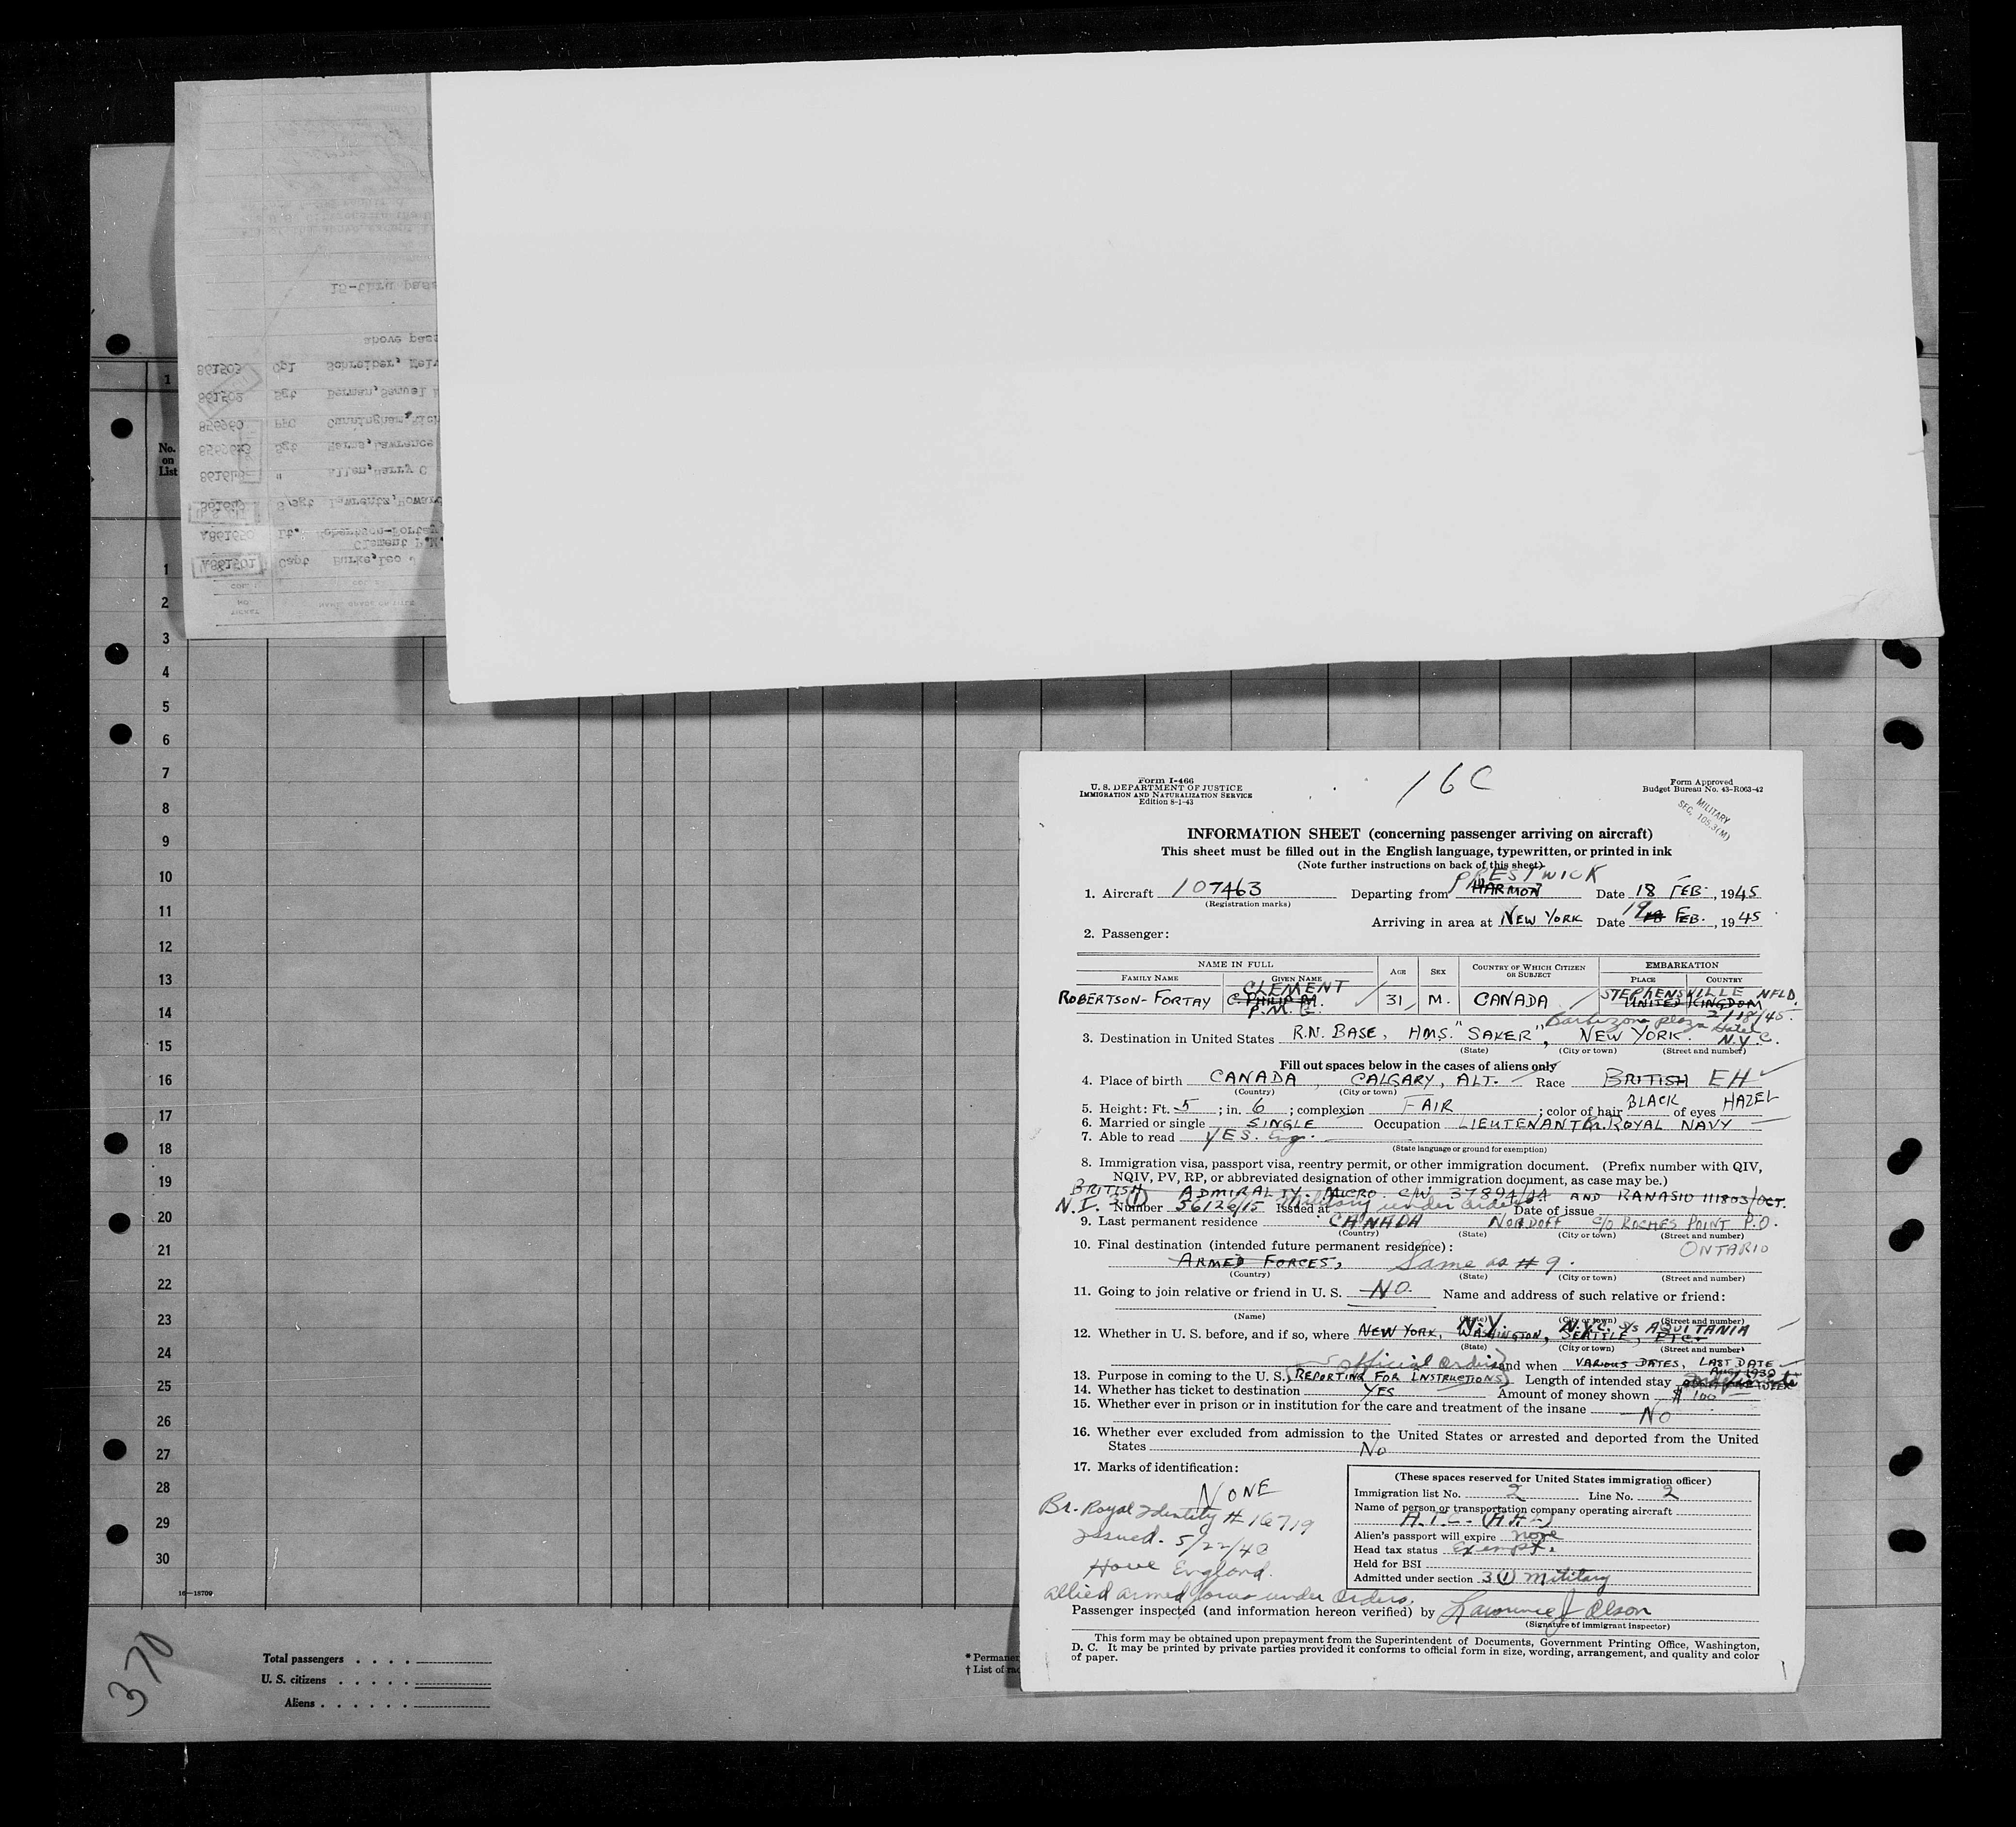 1
No.
on
List
1
2
3
4
5
6
7
8
9
10
11
12
13
14
15
16
17
18
19
20
21
22
23
24
25
26
27
28
29
30
16—18709
370
Total passengers . . . .
U. S. citizens . . . . .
Aliens . . . . . .
* Permane
† List of rac
15-thru pass
above pass
861503 Cpl Schreiber, Melv
861502 Sgt Berman, Samuel
856960 PFC Cunningham, Rich
Sgt Lawrence
" Allen, Harry C
S/Sgt Howard
A861650 Lt. Robertson-Fortay
Clement P.M.
A861501 Capt Burke, Leo J
Form I-466
U. S. DEPARTMENT OF JUSTICE
IMMIGRATION AND NATURALIZATION SERVICE
Edition 8-1-43
16C
Form Approved
Budget Bureau No. 43-R063-42
MILITARY
SEC. 105.3(M)
INFORMATION SHEET (concerning passenger arriving on aircraft)
This sheet must be filled out in the English language, typewritten, or printed in ink
(Note further instructions on back of this sheet)
PRESTWICK
1. Aircraft 107463 Departing from HARMON Date 18 FEB., 1945
(Registration marks)
Arriving in area at NEW YORK Date 19 18 FEB., 1945
2. Passenger:
NAME IN FULL AGE SEX COUNTRY OF WHICH CITIZEN OR SUBJECT EMBARKATION
FAMILY NAME GIVEN NAME PLACE COUNTRY
CLEMENT STEPHENSVILLE NFLD.
ROBERTSON-FORTAY C. PHILIP M. 31 M. CANADA UNITED KINGDOM
P.M.C. 2/18/45
Barbizon plaza Hotel
3. Destination in United States R.N. BASE, HMS. "SAKER", NEW YORK. N.Y.C.
(State) (City or town) (Street and number)
Fill out spaces below in the cases of aliens only
4. Place of birth CANADA, CALGARY, ALT. Race BRITISH EH
(Country) (City or town)
5. Height: Ft. 5; in. 6; complexion FAIR; color of hair BLACK of eyes HAZEL
6. Married or single SINGLE Occupation LIEUTENANT Br. ROYAL NAVY
7. Able to read YES. Eng.
(State language or ground for exemption)
8. Immigration visa, passport visa, reentry permit, or other immigration document. (Prefix number with QIV,
NQIV, PV, RP, or abbreviated designation of other immigration document, as case may be.)
BRITISH ADMIRALTY. MICRO. C/W 37894/44 AND RANASIO 111803/OCT.
N.I. 3(1) Number 56126/15 Issued at Military under orders Date of issue
9. Last permanent residence CANADA NORDOFF C/O ROCHES POINT P.O.
(Country) (State) (City or town) (Street and number)
10. Final destination (intended future permanent residence): ONTARIO
ARMED FORCES, Same as #9.
(Country) (State) (City or town) (Street and number)
11. Going to join relative or friend in U. S. NO. Name and address of such relative or friend:
(Name) (State) (City or town) (Street and number)
N.Y. N.Y.C. S/S AQUITANIA
12. Whether in U. S. before, and if so, where NEW YORK, WASHINGTON, SEATTLE, ETC.
(State) (City or town) (Street and number)
official orders and when VARIOUS DATES, LAST DATE
Aug 1939
13. Purpose in coming to the U. S. (REPORTING FOR INSTRUCTIONS) Length of intended stay
14. Whether has ticket to destination YES Amount of money shown $100
15. Whether ever in prison or in institution for the care and treatment of the insane NO
16. Whether ever excluded from admission to the United States or arrested and deported from the United
States No
17. Marks of identification:
NONE
Br. Royal Identity # 16719
Issued. 5/22/40
Hove England.
allied armed forces under orders.
(These spaces reserved for United States immigration officer)
Immigration list No. 2 Line No. 2
Name of person or transportation company operating aircraft
A.T.C. (AHL)
Alien's passport will expire none
Head tax status Exempt.
Held for BSI
Admitted under section 3(1) military
Passenger inspected (and information hereon verified) by Lawrence J Olson
(Signature of immigrant inspector)
This form may be obtained upon prepayment from the Superintendent of Documents, Government Printing Office, Washington,
D. C. It may be printed by private parties provided it conforms to official form in size, wording, arrangement, and quality and color
of paper.